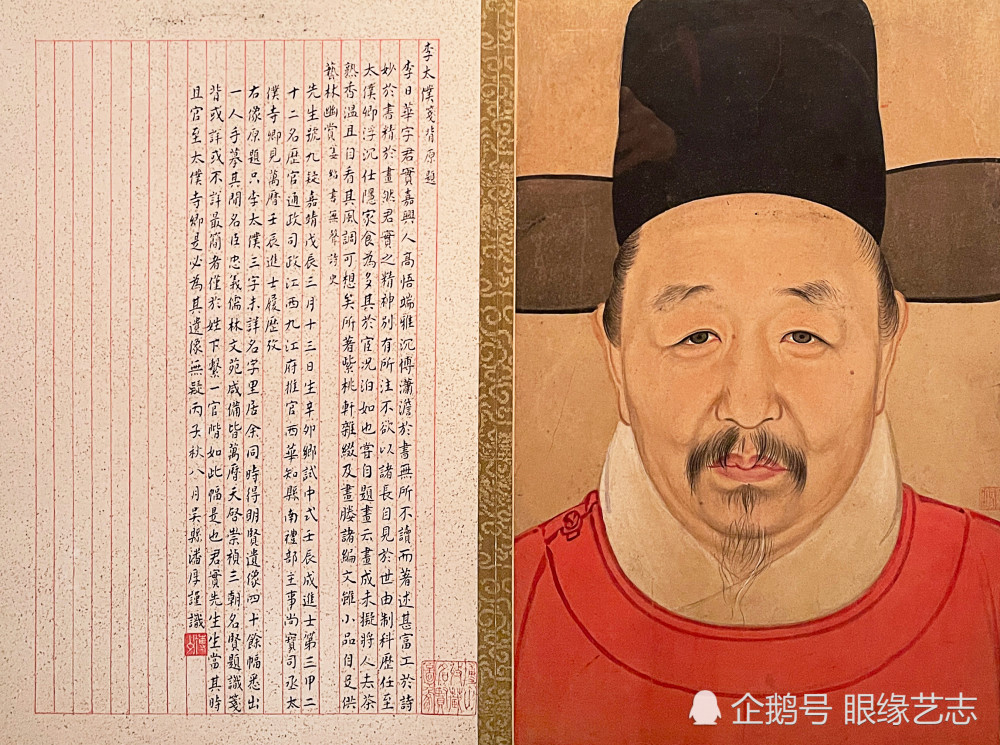 李太僕箋背原題
李日華字君實嘉興人高悟端雅沉博瀟澹於書無所不讀而著述甚富工於詩
妙於書精於畫然君實之精神別有所注不欲以諸長自見於世由制科歷任至
太僕卿浮沉仕隱家食為多其於宦况泊如也嘗自題畫云畫成未擬將人去茶
熟香温且自看其風調可想矣所著紫桃軒雜綴及畫媵諸編文雖小品自足供
藝林幽賞 書無聲詩史
先生號九疑嘉靖戊辰三月十三日生辛卯鄉試中式壬辰成進士第三甲二
十二名歷官通政司政江西九江府推官西華知縣南禮部主事尚寶司丞太
僕寺卿見萬曆壬辰進士履歷攷
右像原題只李太僕三字未詳名字里居余同時得明賢遺像四十餘幅悉出
一人手摹其間名臣忠義儒林文苑咸備皆萬曆天啓崇禎三朝名賢題識箋
背或詳或不詳最簡者僅於姓下繫一官階如此幅是也君實先生生當其時
且官至太僕寺卿是必為其遺像無疑丙子秋八月吳縣潘厚謹識
企鹅号 眼缘艺志